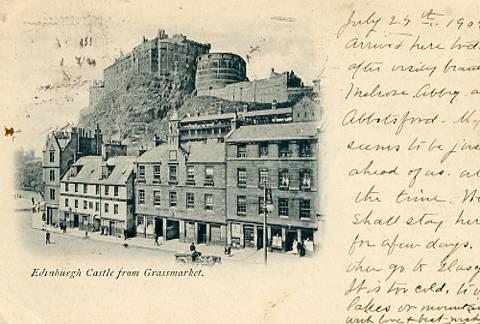 Edinburgh Castle from Grassmarket.
July 27th 190
Arrived here
after
Melrose Abbey a
Abbotsford. M
seems to be jus
ahead of us. al
the time. We
Shall stay her
for a few days.
then go to Glasg
It is too cold, to
lakes or mountain
with love & best wish